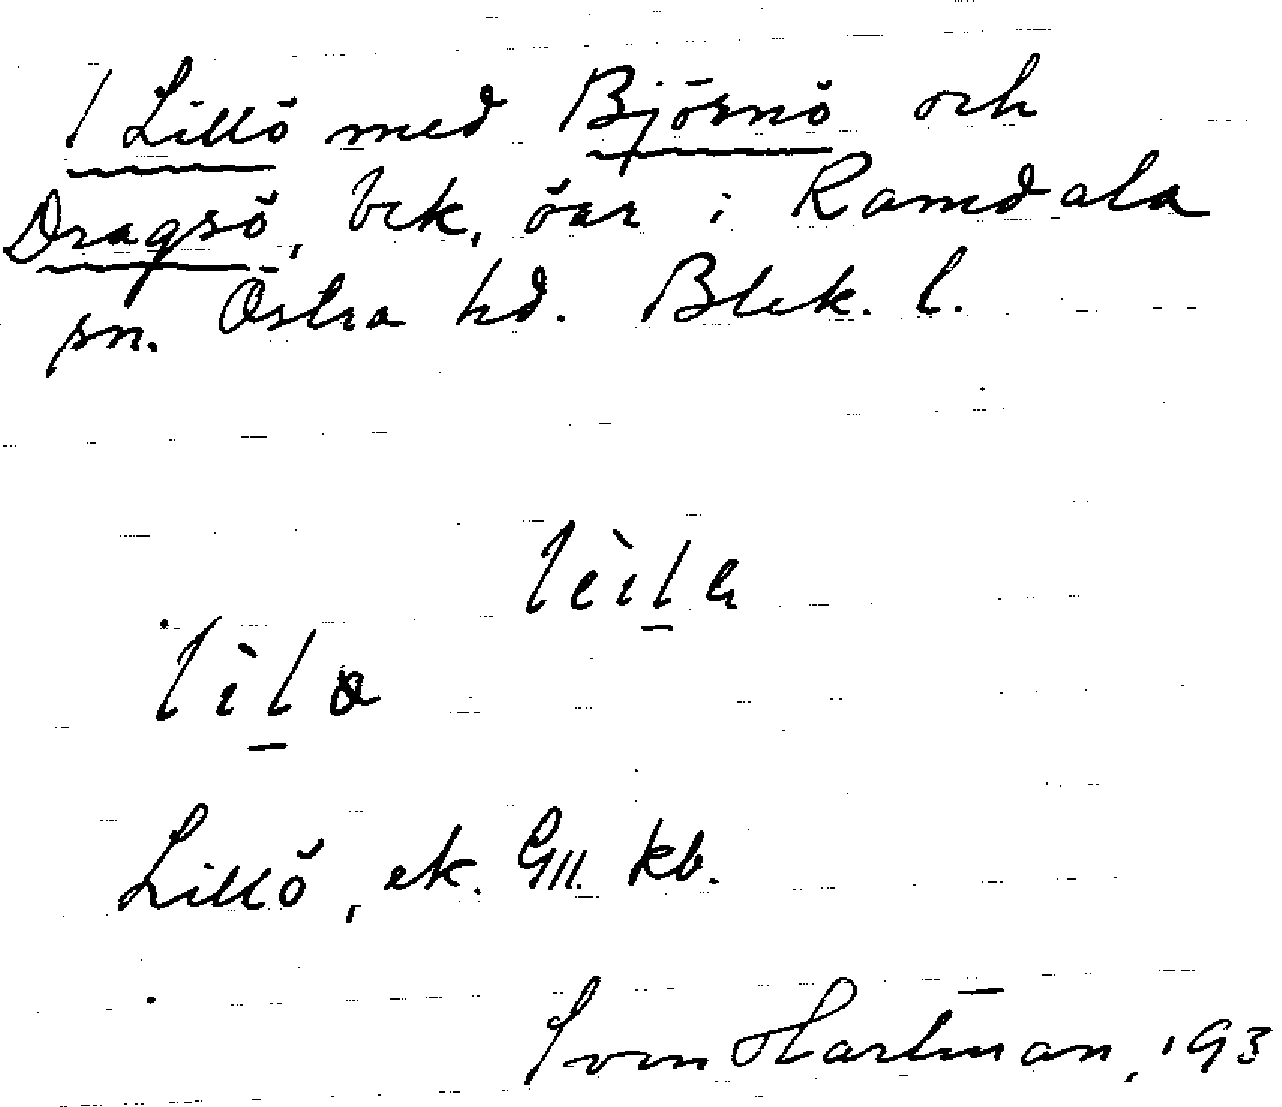 1 Lillö med Björnö och
Dragsö, bek. öar i Ramdala
sn. Östra hd. Blek. l.
lèilɑ
lìlɑ
Lillö, ek. GII. kb.
Sven Hartman, 193